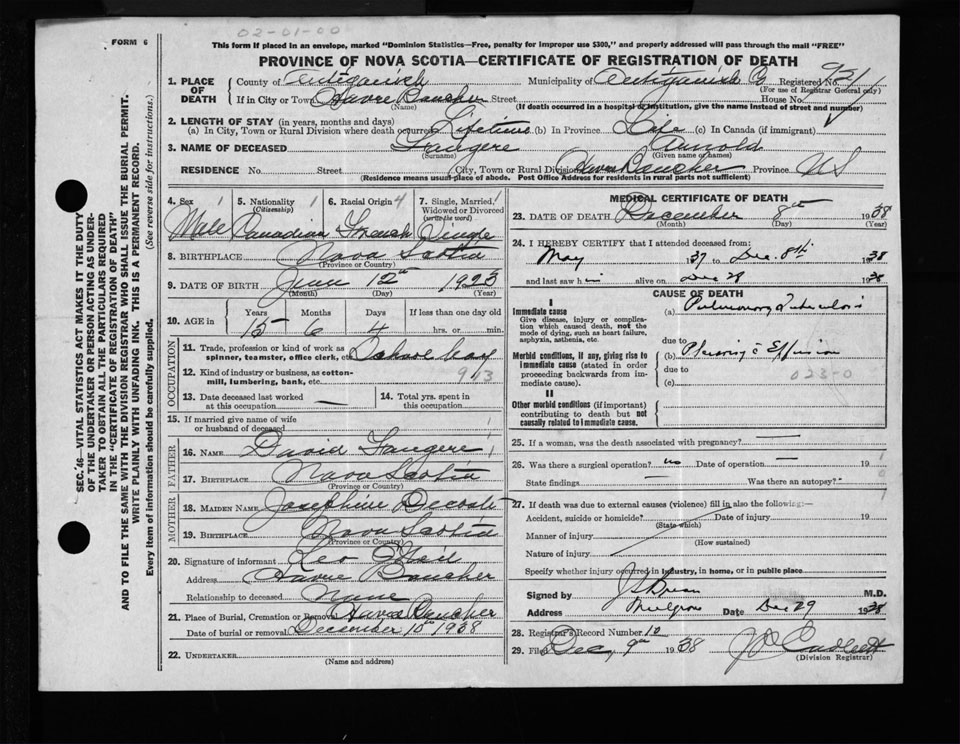 02-01-00
FORM 6
This form if placed in an envelope, marked "Dominion Statistics—Free, penalty for improper use $300," and properly addressed will pass through the mail "FREE"
PROVINCE OF NOVA SCOTIA—CERTIFICATE OF REGISTRATION OF DEATH
1. PLACE OF DEATH County of Antigonish Municipality of Antigonish Co Registered No. 921
(For use of Registrar General only)
If in City or Town Havre Boucher Street House No.
(Name) (If death occurred in a hospital or institution, give the name instead of street and number)
2. LENGTH OF STAY (in years, months and days)
(a) In City, Town or Rural Division where death occurred Lifetime (b) In Province Life (c) In Canada (if immigrant)
3. NAME OF DECEASED Fougere Arnold
(Surname) (Given name or names)
RESIDENCE No. Street City, Town or Rural Division Havre Boucher Province N S
(Residence means usual place of abode. Post Office Address for residents in rural parts not sufficient)
4. Sex 1 Male
5. Nationality 1 (Citizenship) Canadian
6. Racial Origin 4 French
7. Single, Married, Widowed or Divorced (write the word) 1 Single
8. BIRTHPLACE Nova Scotia
(Province or Country)
9. DATE OF BIRTH June 12th 1923
(Month) (Day) (Year)
10. AGE in Years Months Days If less than one day old
15 6 4 hrs. or min.
OCCUPATION
11. Trade, profession or kind of work as spinner, teamster, office clerk, etc. School boy
12. Kind of industry or business, as cotton-mill, lumbering, bank, etc. 913
13. Date deceased last worked at this occupation — 14. Total yrs. spent in this occupation
15. If married give name of wife or husband of deceased
FATHER
16. NAME David Fougere
17. BIRTHPLACE Nova Scotia
(Province or Country)
MOTHER
18. MAIDEN NAME Josephine Decoste
19. BIRTHPLACE Nova Scotia
(Province or Country)
20. Signature of informant Leo O'Neil
Address Havre Boucher
Relationship to deceased None
21. Place of Burial, Cremation or Removal Havre Boucher
Date of burial or removal December 10th 1938
22. UNDERTAKER
(Name and address)
MEDICAL CERTIFICATE OF DEATH
23. DATE OF DEATH December 8th 1938
(Month) (Day)
24. I HEREBY CERTIFY that I attended deceased from:
May 1937 to Dec. 8th 1938
and last saw h im alive on Dec 28 1938
CAUSE OF DEATH
I
Immediate cause (a) Pulmonary Tuberculosis
Give disease, injury or complication which caused death, not the mode of dying, such as heart failure, asphyxia, asthenia, etc.
due to
Morbid conditions, if any, giving rise to immediate cause (stated in order proceeding backwards from immediate cause). (b) Pleurisy c̄ Effusion
due to 023-0
(c)
II
Other morbid conditions (if important) contributing to death but not causally related to immediate cause.
25. If a woman, was the death associated with pregnancy? —
26. Was there a surgical operation? no Date of operation — 19
State findings — Was there an autopsy? -
27. If death was due to external causes (violence) fill in also the following:—
Accident, suicide or homicide? Date of injury 19
(State which)
Manner of injury
(How sustained)
Nature of injury
Specify whether injury occurred in industry, in home, or in public place
Signed by M.D.
Address Mulgrave Date Dec 29 1938
28. Registrar's Record Number 12
29. Filed Dec. 9th 1938
(Division Registrar)
SEC. 46—VITAL STATISTICS ACT MAKES IT THE DUTY OF THE UNDERTAKER OR PERSON ACTING AS UNDERTAKER TO OBTAIN ALL THE PARTICULARS REQUIRED IN THE "CERTIFICATE OF REGISTRATION OF DEATH" AND TO FILE THE SAME WITH THE DIVISION REGISTRAR WHO SHALL ISSUE THE BURIAL PERMIT.
WRITE PLAINLY WITH UNFADING INK. THIS IS A PERMANENT RECORD.
Every item of information should be carefully supplied. (See reverse side for instructions.)